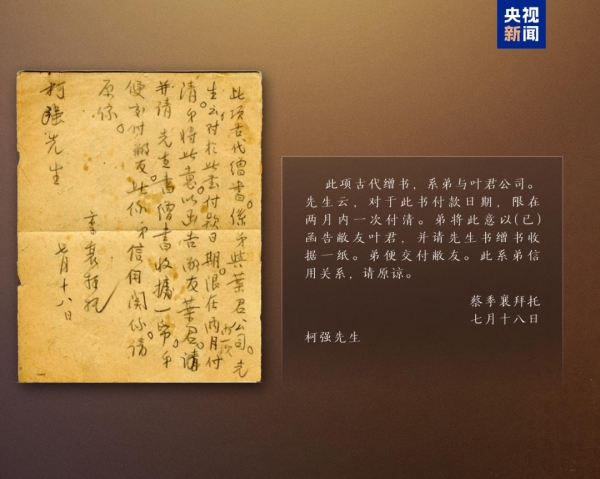 央视
新闻
此项古代缯書。係弟與葉君公司。先
生云。对於此書付款日期。限在两月付
内一次
清。弟將此意以函告敝友葉君。請
并請 先生書缯書收據一帋。弟
便交付敝友。此係弟信用関係。請
原諒。
季襄拜托
七月十八日
柯强先生
此项古代缯书，系弟与叶君公司。
先生云，对于此书付款日期，限在
两月内一次付清。弟将此意以(已)
函告敝友叶君，并请先生书缯书收
据一纸。弟便交付敝友。此系弟信
用关系，请原谅。
蔡季襄拜托
七月十八日
柯强先生